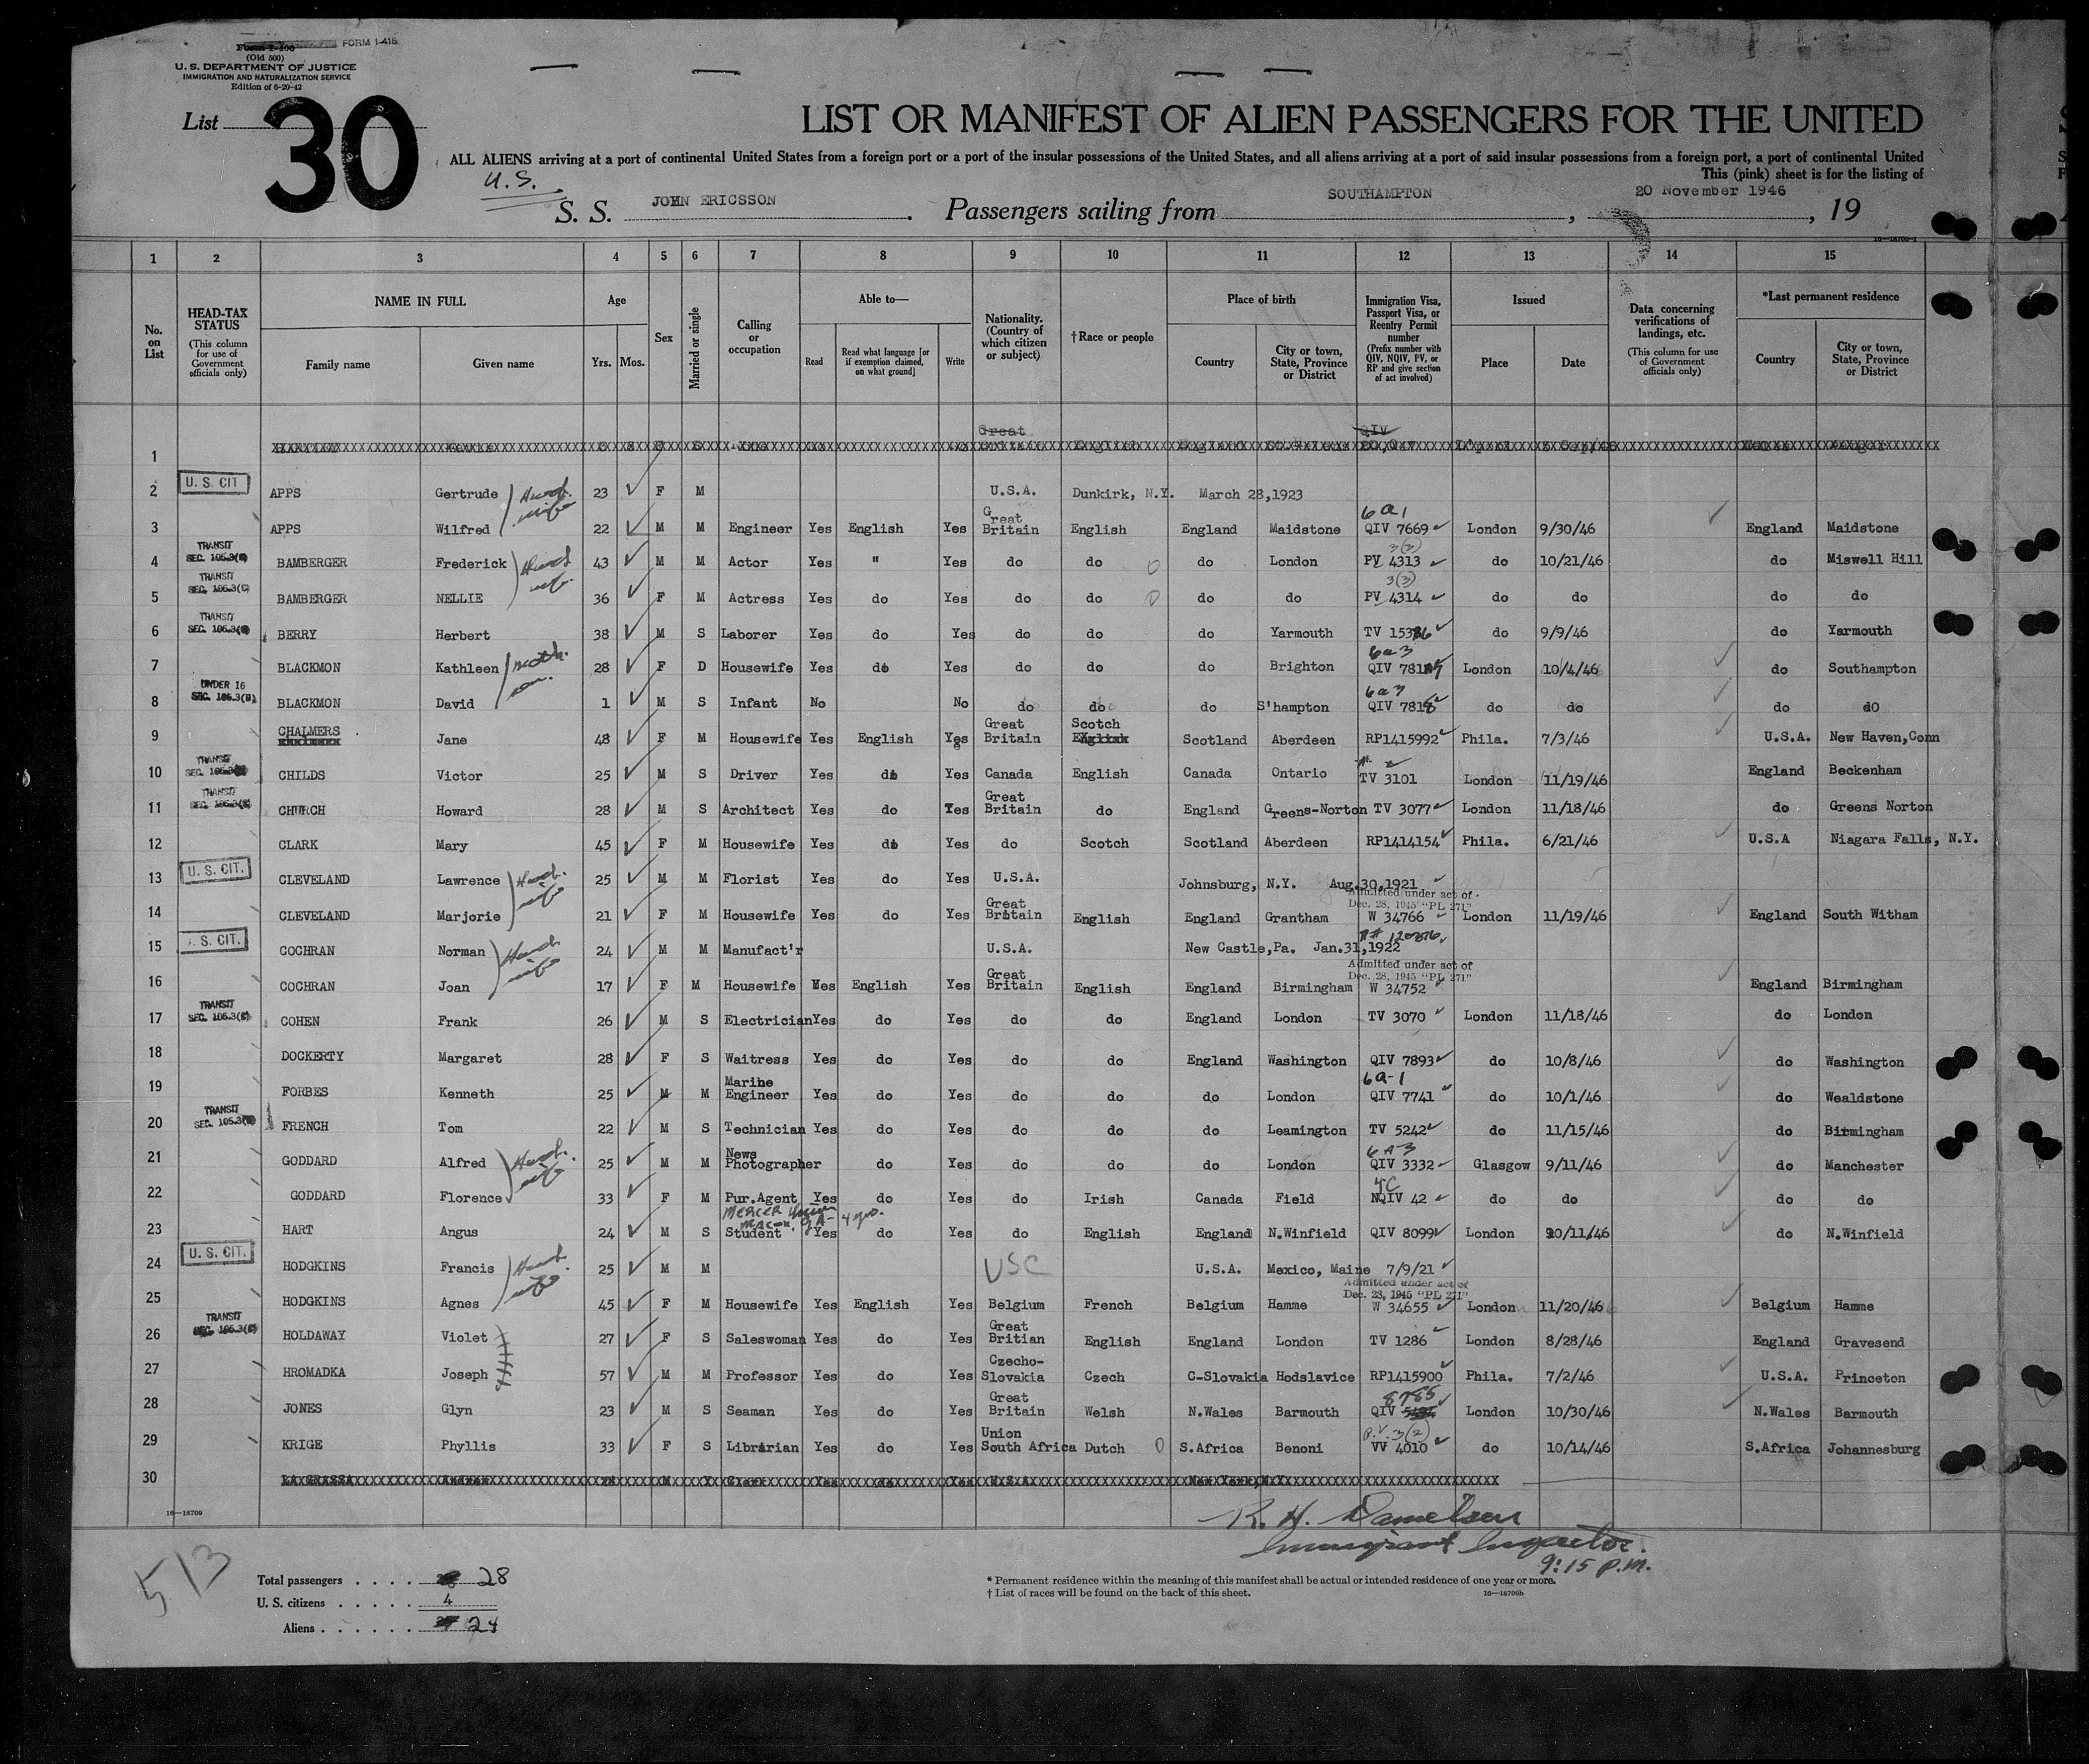 Form I-100 FORM I-415
(Old 500)
U. S. DEPARTMENT OF JUSTICE
IMMIGRATION AND NATURALIZATION SERVICE
Edition of 6-20-42
List 30
LIST OR MANIFEST OF ALIEN PASSENGERS FOR THE UNITED
ALL ALIENS arriving at a port of continental United States from a foreign port or a port of the insular possessions of the United States, and all aliens arriving at a port of said insular possessions from a foreign port, a port of continental United
This (pink) sheet is for the listing of
U.S.
S. S. JOHN ERICSSON . Passengers sailing from SOUTHAMPTON , 20 November 1946 , 19
16—18709-1
1 2 3 4 5 6 7 8 9 10 11 12 13 14 15
No. on List
HEAD-TAX STATUS (This column for use of Government officials only)
NAME IN FULL Family name Given name
Age Yrs. Mos.
Sex
Married or single
Calling or occupation
Able to— Read Read what language [or if exemption claimed, on what ground] Write
Nationality. (Country of which citizen or subject)
†Race or people
Place of birth Country City or town, State, Province or District
Immigration Visa, Passport Visa, or Reentry Permit number (Prefix number with QIV, NQIV, PV, or RP and give section of act involved)
Issued Place Date
Data concerning verifications of landings, etc. (This column for use of Government officials only)
*Last permanent residence Country City or town, State, Province or District
1 Great QIV
2 U. S. CIT APPS Gertrude Husb. wife 23 F M U.S.A. Dunkirk, N.Y. March 28,1923
3 APPS Wilfred 22 M M Engineer Yes English Yes Great Britain English England Maidstone 6a1 QIV 7669 London 9/30/46 England Maidstone
4 TRANSIT SEC. 105.3( ) BAMBERGER Frederick Husb wife 43 M M Actor Yes " Yes do do do London 3(3) PV 4313 do 10/21/46 do Miswell Hill
5 TRANSIT SEC. 105.3( ) BAMBERGER NELLIE 36 F M Actress Yes do Yes do do do do 3(3) PV 4314 do do do do
6 TRANSIT SEC. 105.3( ) BERRY Herbert 38 M S Laborer Yes do Yes do do do Yarmouth TV do 9/9/46 do Yarmouth
7 BLACKMON Kathleen moth. son. 28 F D Housewife Yes do Yes do do do Brighton 6a3 QIV London 10/4/46 do Southampton
8 UNDER 16 SEC. 105.3( ) BLACKMON David 1 M S Infant No No do do do S'hampton 6a3 QIV 7818 do do do dO
9 CHALMERS Jane 48 F M Housewife Yes English Yes Great Britain Scotch English Scotland Aberdeen RP1415992 Phila. 7/3/46 U.S.A. New Haven,Conn
10 TRANSIT SEC. 105.3( ) CHILDS Victor 25 M S Driver Yes do Yes Canada English Canada Ontario TV 3101 London 11/19/46 England Beckenham
11 TRANSIT SEC. 105.3( ) CHURCH Howard 28 M S Architect Yes do Yes Great Britain do England Greens-Norton TV 3077 London 11/18/46 do Greens Norton
12 CLARK Mary 45 F M Housewife Yes do Yes do Scotch Scotland Aberdeen RP1414154 Phila. 6/21/46 U.S.A Niagara Falls, N.Y.
13 U. S. CIT. CLEVELAND Lawrence Husb. wife 25 M M Florist Yes do Yes U.S.A. Johnsburg, N.Y. Aug.30,1921
14 CLEVELAND Marjorie 21 F M Housewife Yes do Yes Great Britain English England Grantham Admitted under act of Dec. 28, 1945 "PL 271" W 34766 London 11/19/46 England South Witham
15 U. S. CIT. COCHRAN Norman Husb wife 24 M M Manufact'r U.S.A. New Castle,Pa. Jan.31,1922
16 COCHRAN Joan 17 F M Housewife Yes English Yes Great Britain English England Birmingham Admitted under act of Dec. 28, 1945 "PL 271" W 34752 England Birmingham
17 TRANSIT SEC. 105.3( ) COHEN Frank 26 M S Electrician Yes do Yes do do England London TV 3070 London 11/18/46 do London
18 DOCKERTY Margaret 28 F S Waitress Yes do Yes do do England Washington QIV 7893 do 10/8/46 do Washington
19 FORBES Kenneth 25 M M Marine Engineer Yes do Yes do do do London 6a-1 QIV 7741 do 10/1/46 do Wealdstone
20 TRANSIT SEC. 105.3( ) FRENCH Tom 22 M S Technician Yes do Yes do do do Leamington TV 5242 do 11/15/46 do Birmingham
21 GODDARD Alfred Husb. wife 25 M M News Photographer do Yes do do do London 6A3 QIV 3332 Glasgow 9/11/46 do Manchester
22 GODDARD Florence 33 F M Pur.Agent Yes do Yes do Irish Canada Field 4C NQIV 42 do do do do
23 HART Angus 24 M S Mercer Macon, GA- 4 yrs. Student Yes do Yes do English England N.Winfield QIV 8099 London 10/11/46 do N.Winfield
24 U. S. CIT. HODGKINS Francis Husb. wife 25 M M USC U.S.A. Mexico, Maine 7/9/21
25 HODGKINS Agnes 45 F M Housewife Yes English Yes Belgium French Belgium Hamme Admitted under act of Dec. 28, 1945 "PL 271" W 34655 London 11/20/46 Belgium Hamme
26 TRANSIT SEC. 105.3( ) HOLDAWAY Violet 27 F S Saleswoman Yes do Yes Great Britian English England London TV 1286 London 8/28/46 England Gravesend
27 HROMADKA Joseph 57 M M Professor Yes do Yes Czecho-Slovakia Czech C-Slovakia Hodslavice RP1415900 Phila. 7/2/46 U.S.A. Princeton
28 JONES Glyn 23 M S Seaman Yes do Yes Great Britain Welsh N.Wales Barmouth 8785 QIV London 10/30/46 N.Wales Barmouth
29 KRIGE Phyllis 33 F S Librarian Yes do Yes Union South Africa Dutch S.Africa Benoni P.V. 3(2) VV 4010 do 10/14/46 S.Africa Johannesburg
30 LA GRASSA Andrew M Clerk Yes do Yes U.S.A. New York,N.Y.
16—18709
R. H. Danielsen
Immigrant Inspector.
9:15 P.M.
513
Total passengers . . . . 28
U. S. citizens . . . . . 4
Aliens . . . . . . 24
* Permanent residence within the meaning of this manifest shall be actual or intended residence of one year or more.
† List of races will be found on the back of this sheet. 16—18709b